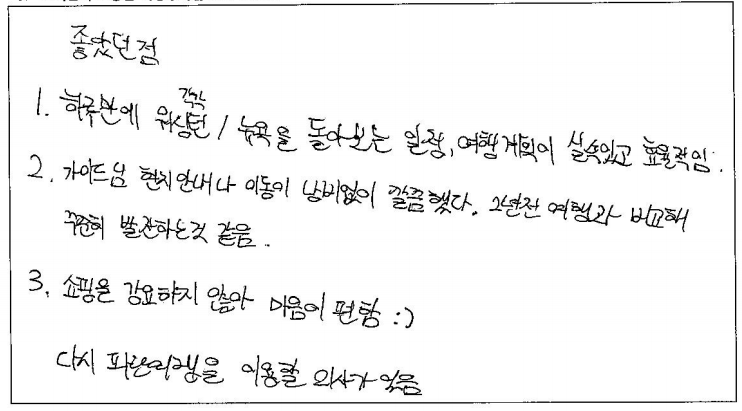 좋았던점
1. 하루만에 각각 워싱턴 / 뉴욕을 돌아보는 일정, 여행계획이 실속있고 효율적임.
2. 가이드님 현지안내나 이동이 낭비없이 깔끔했다. 2년전 여행과 비교해
꾸준히 발전하는것 같음.
3. 쇼핑을 강요하지 않아 마음이 편함 :)
다시 파란여행을 이용할 의사가 있음